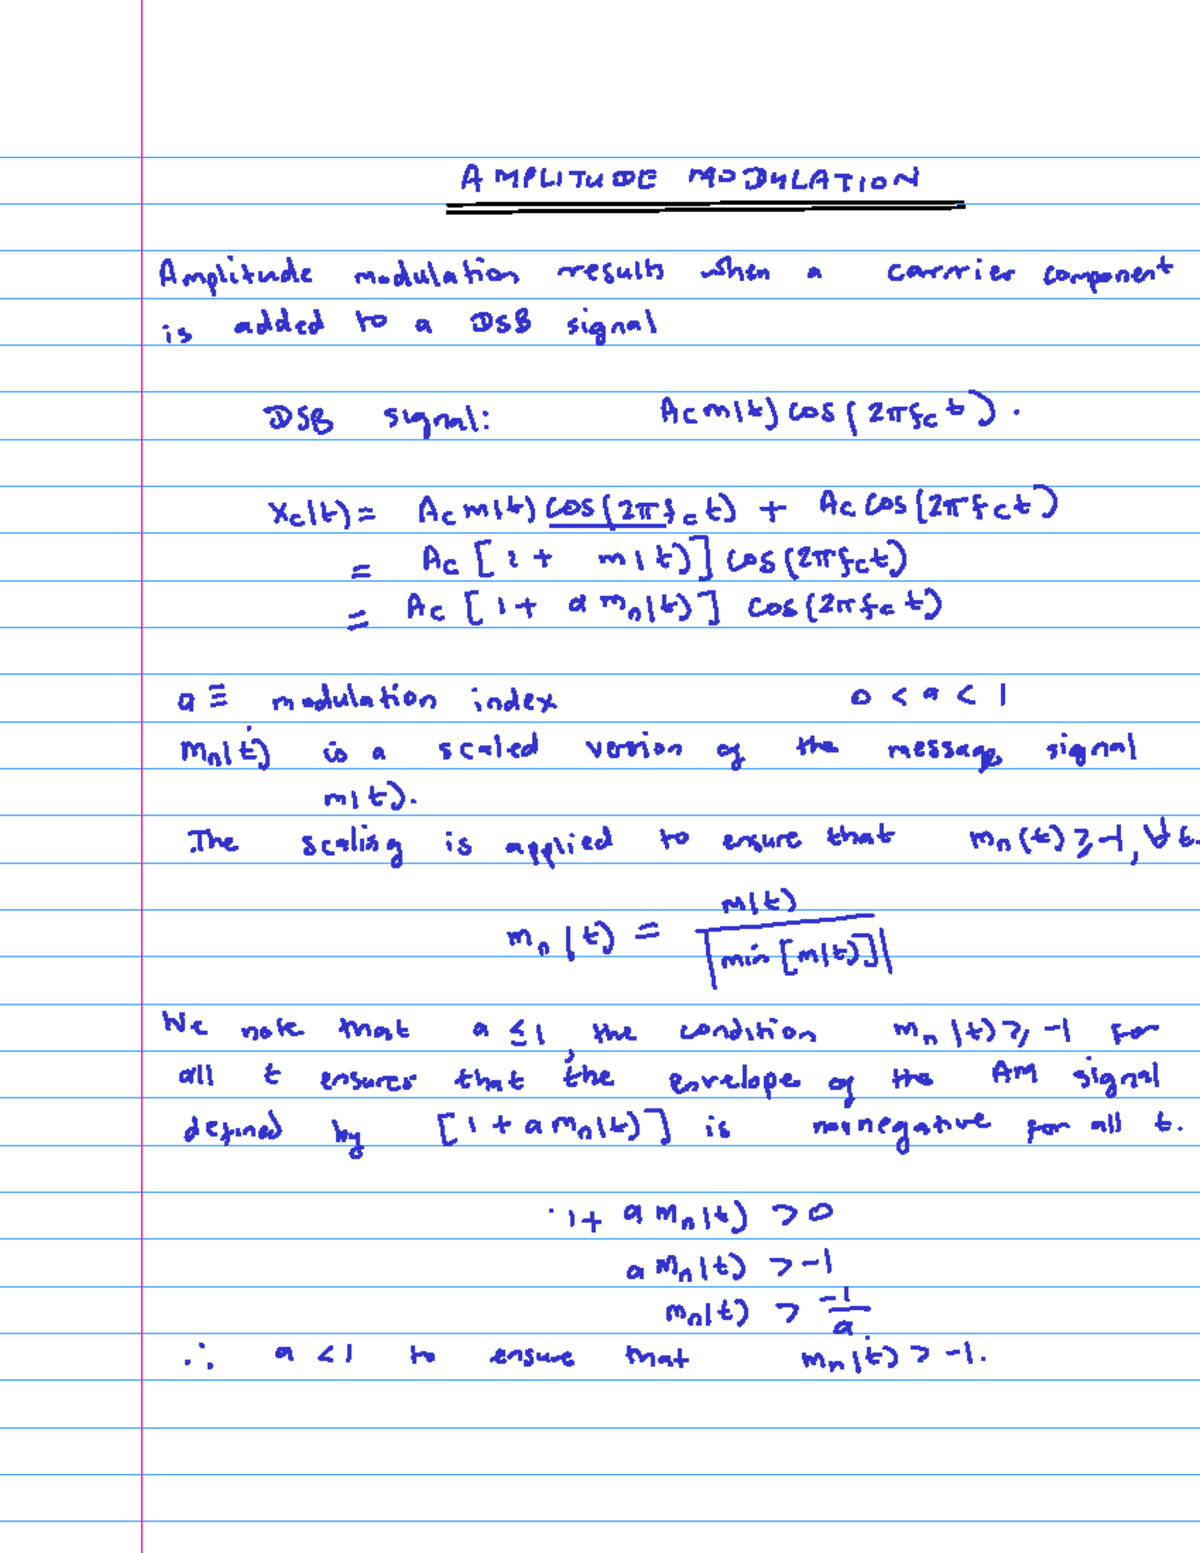 AMPLITUDE MODULATION
Amplitude modulation results when a carrier component
is added to a DSB signal
DSB signal: Ac m(t) cos(2πfc t).
Xc(t) = Ac m(t) cos(2πfc t) + Ac cos(2πfc t)
= Ac [1 + m(t)] cos(2πfct)
= Ac [1 + a mn(t)] cos(2πfc t)
a ≡ modulation index 0 < a < 1
mn(t) is a scaled version of the message signal
m(t).
The scaling is applied to ensure that mn(t) ≥ -1, ∀ t.
mn(t) = m(t)
|min [m(t)]|
We note that a ≤ 1, the condition mn(t) ≥ -1 for
all t ensures that the envelope of the AM signal
defined by [1 + a mn(t)] is nonnegative for all t.
1 + a mn(t) > 0
a mn(t) > -1
mn(t) > -1/a
∴ a < 1 to ensure that mn(t) > -1.